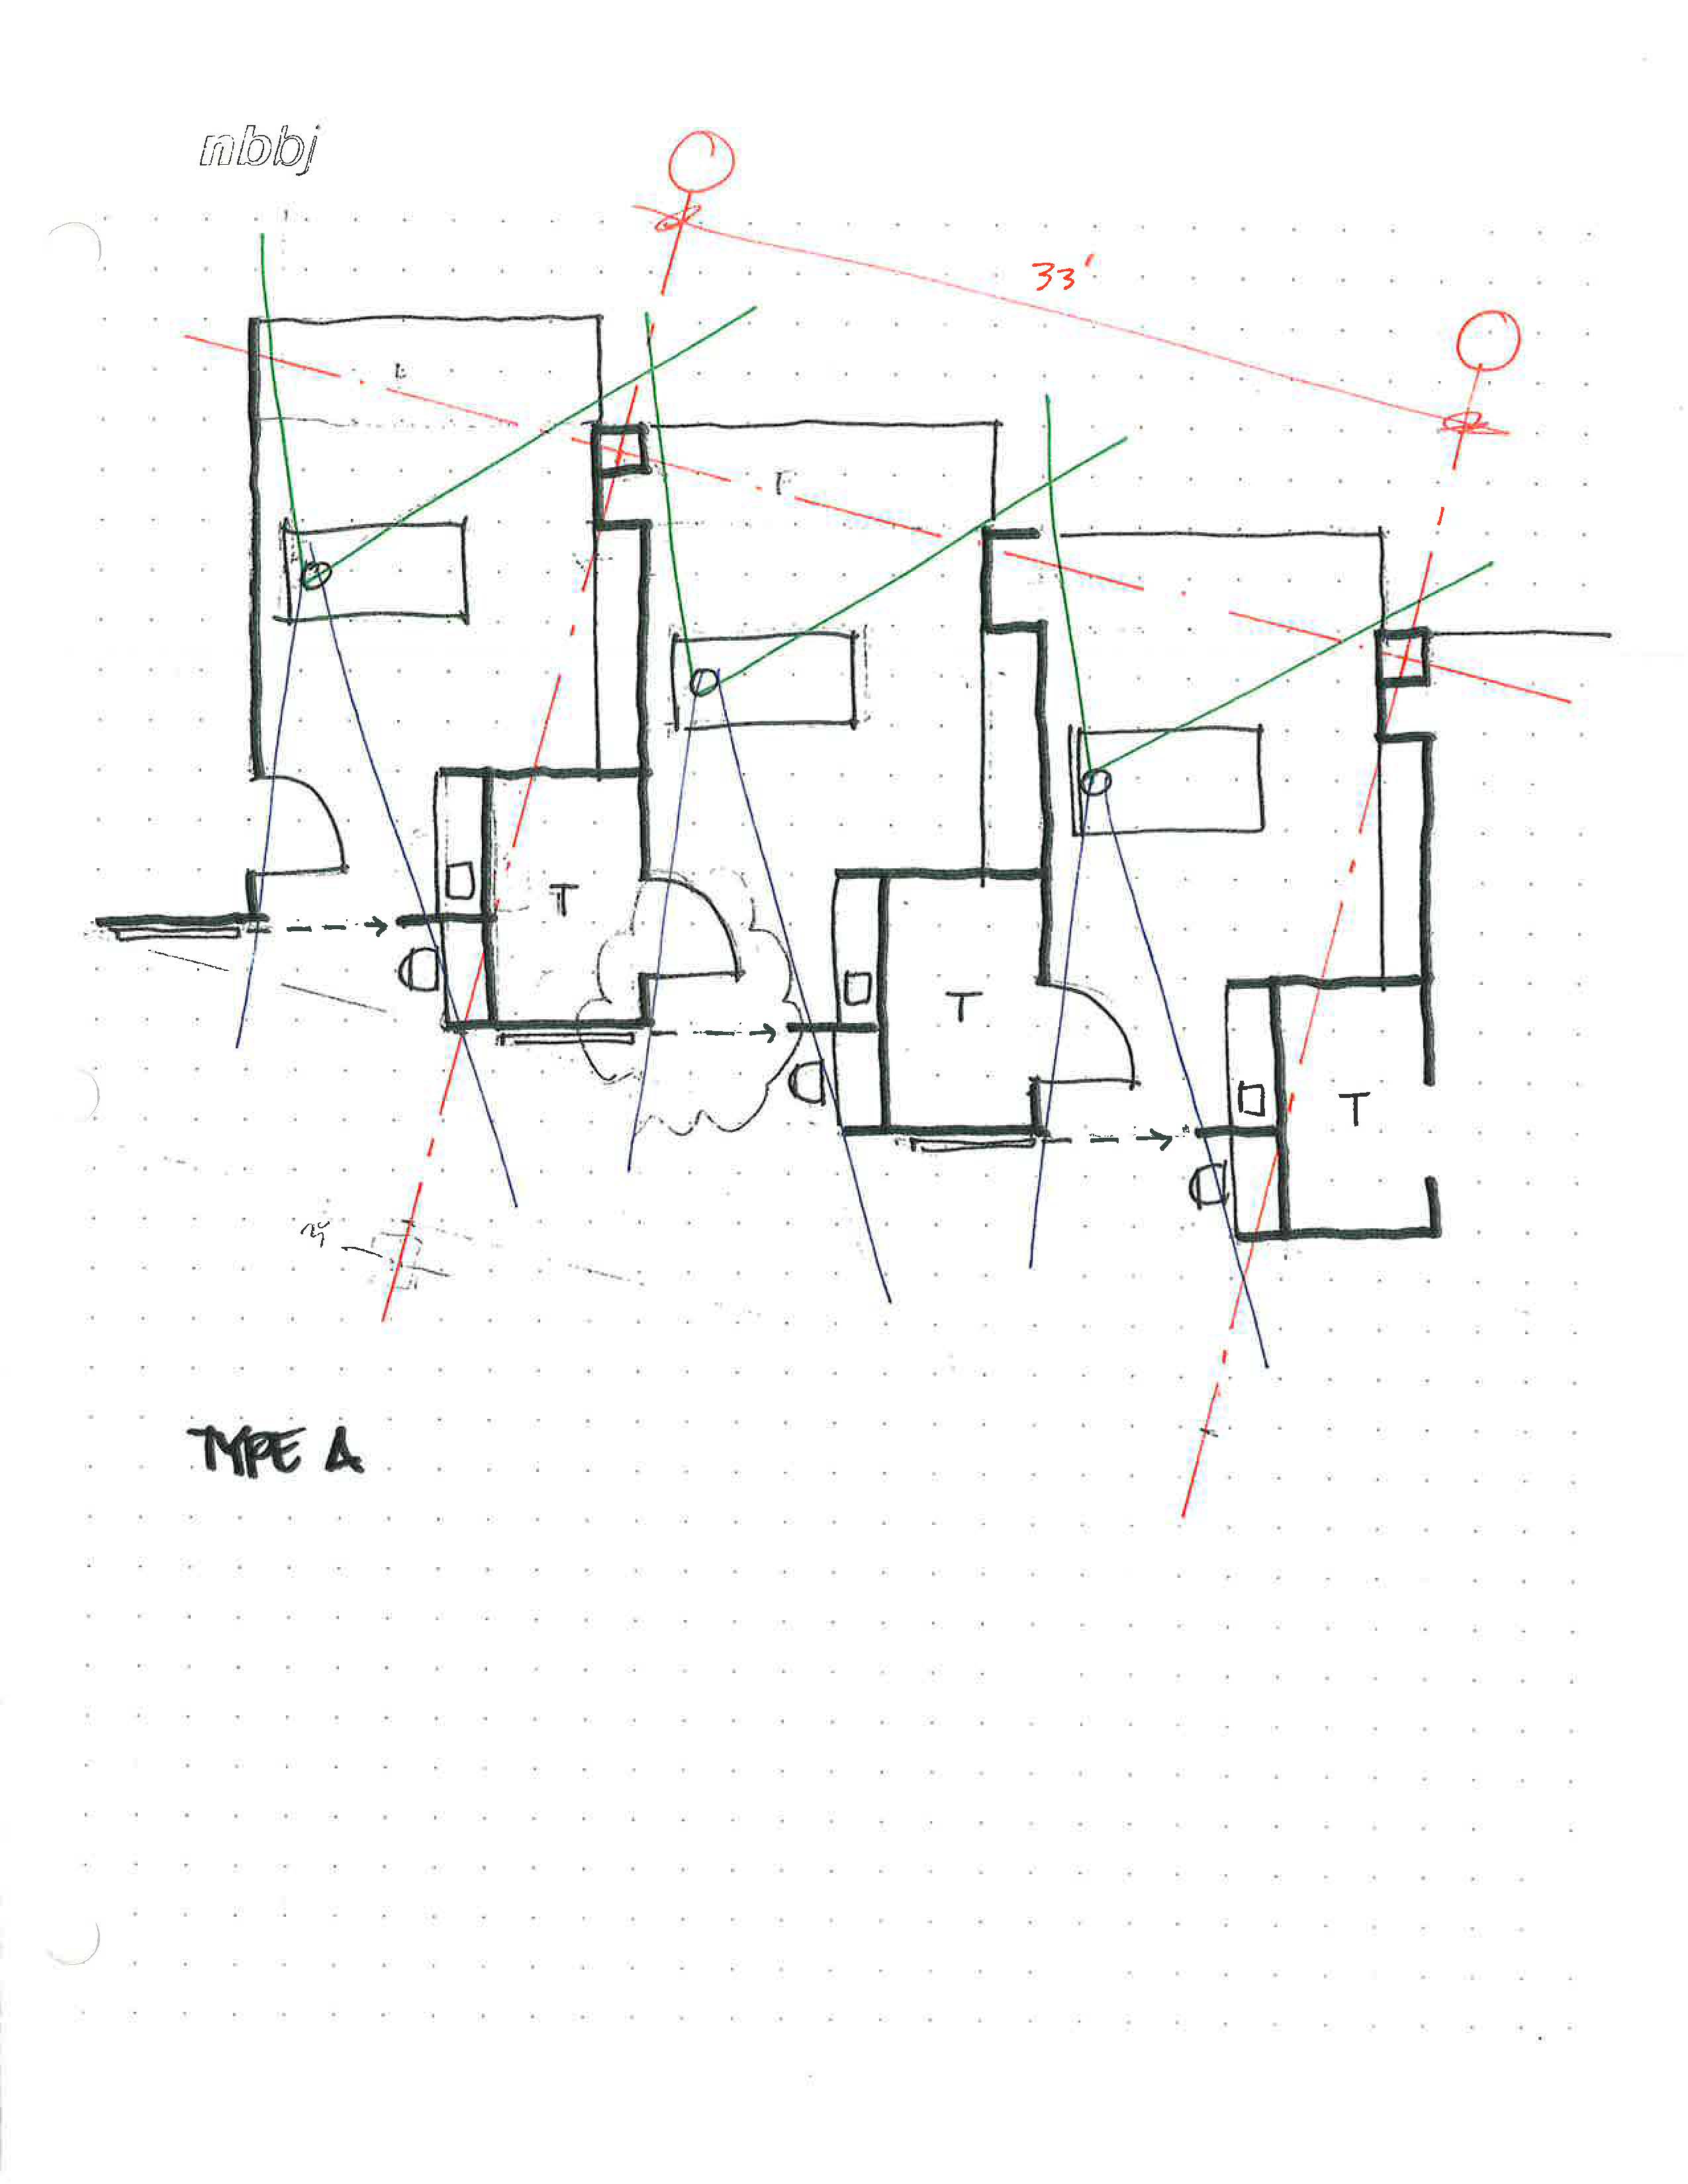 nbbj
33'
T
T
T
TYPE A